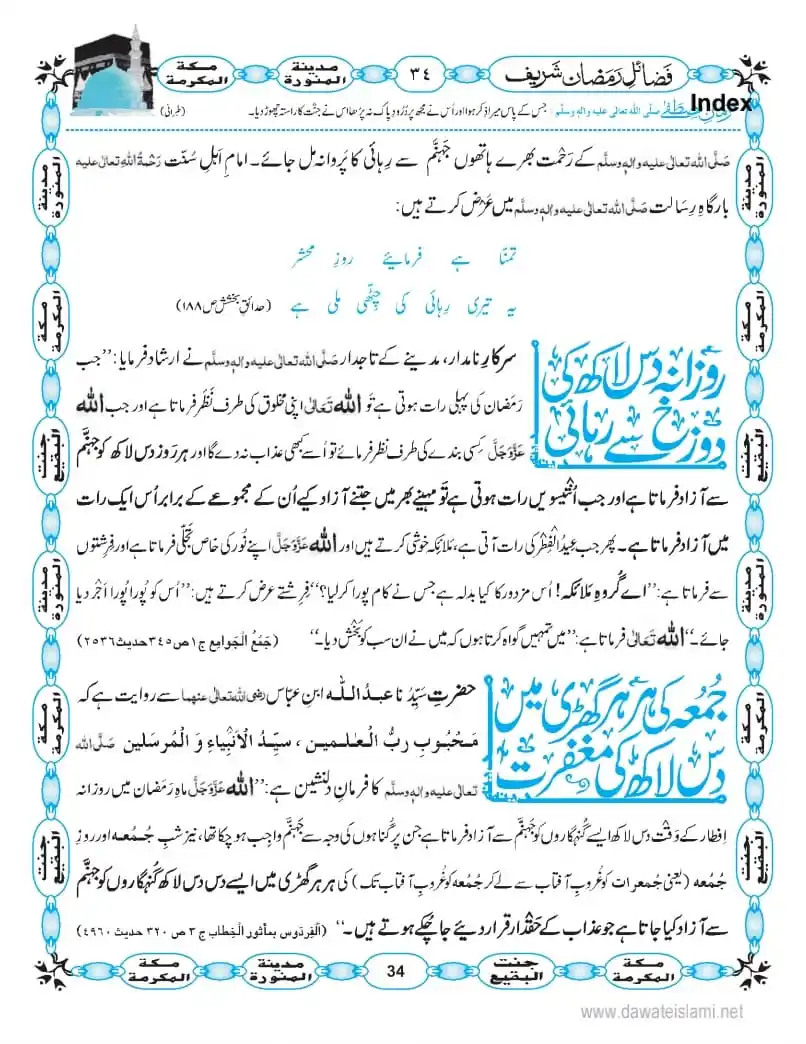 فَضائلِ رَمَضان شریف
٣٤
مدینۃ المنورۃ
مکۃ المکرمۃ
Index
صلَّی اللہ تعالٰی علیہ واٰلہٖ وسلَّم : جس کے پاس میرا ذِکر ہوا اور اُس نے مجھ پر دُرُودِ پاک نہ پڑھا اس نے جنَّت کا راستہ چھوڑ دیا۔ (طبرانی)
صَلَّی اللہ تعالٰی علیہ واٰلہٖ وسلَّم کے رَحْمت بھرے ہاتھوں جہنَّم سے رِہائی کا پَروانہ مل جائے۔ امامِ اَہلِ سُنّت رَحْمَۃُ اللہِ تعالٰی علیہ
بارگاہِ رِسالت صَلَّی اللہ تعالٰی علیہ واٰلہٖ وسلَّم میں عَرْض کرتے ہیں:
تمنّا ہے فرمایئے روزِ محشر
یہ تیری رِہائی کی چِٹّھی ملی ہے (حدائقِ بخشش ص١٨٨)
روزانہ دس لاکھ کی
دوزخ سے رہائی
سرکارِ نامدار، مدینے کے تاجدار صَلَّی اللہ تعالٰی علیہ واٰلہٖ وسلَّم نے ارشاد فرمایا: ’’جب
رَمَضان کی پہلی رات ہوتی ہے تو اللہ تَعَالٰی اپنی مخلوق کی طرف نَظَر فرماتا ہے اور جب اللہ
عَزَّوَجَلَّ کِسی بندے کی طرف نظر فرمائے تو اُسے کبھی عذاب نہ دے گا اور ہر روز دس لاکھ کو جہنَّم
سے آزاد فرماتا ہے اور جب اُنتیسویں رات ہوتی ہے تو مہینے بھر میں جتنے آزاد کیے اُن کے مجموعے کے برابر اُس ایک رات
میں آزاد فرماتا ہے۔ پھر جب عِیدُ الْفِطْر کی رات آتی ہے، ملائکہ خوشی کرتے ہیں اور اللہ عَزَّوَجَلَّ اپنے نُور کی خاص تَجَلّی فرماتا ہے اور فِرِشتوں
سے فرماتا ہے: ’’اے گُروہِ ملائکہ! اُس مزدور کا کیا بدلہ ہے جس نے کام پورا کرلیا؟‘‘ فِرِشتے عرض کرتے ہیں: ’’اُس کو پُورا پُورا اَجْر دیا
جائے۔‘‘ اللہ تَعَالٰی فرماتا ہے: ’’میں تمہیں گواہ کرتا ہوں کہ میں نے ان سب کو بَخْش دیا۔‘‘ (جَمْعُ الْجَوامِع ج١ ص٣٤٥ حدیث ٢٥٣٦)
جُمُعہ کی ہر ہر گھڑی میں
دس لاکھ کی مغفرت
حضرتِ سیِّدُنا عبدُ اللہ ابنِ عبّاس رضی اللہ تعالٰی عنہما سے روایت ہے کہ
مَحْبُوبِ ربُّ الْعٰلمین ، سیِّدُ الْاَنْبِیاءِ وَ الْمُرسَلین صَلَّی اللہ
تعالٰی علیہ واٰلہٖ وسلَّم کا فرمانِ دِلنشین ہے: ’’اللہ عَزَّوَجَلَّ ماہِ رَمَضان میں روزانہ
اِفطار کے وَقْت دس لاکھ ایسے گُنہگاروں کو جہنَّم سے آزاد فرماتا ہے جن پر گُناہوں کی وجہ سے جہنَّم واجِب ہو چکا تھا، نیز شبِ جُمُعہ اور روزِ
جُمُعہ (یعنی جُمعرات کو غُروبِ آفتاب سے لے کر جُمُعہ کو غُروبِ آفتاب تک) کی ہر ہر گھڑی میں ایسے دس دس لاکھ گُنہگاروں کو جہنَّم
سے آزاد کیا جاتا ہے جو عذاب کے حقدار قرار دیئے جاچکے ہوتے ہیں۔‘‘ (اَلْفِردَوس بمأثور الْخِطاب ج٣ ص ٣٢٠ حدیث ٤٩٦٠)
مدینۃ المنورۃ
مکۃ المکرمۃ
جنت البقیع
مدینۃ المنورۃ
مکۃ المکرمۃ
جنت البقیع
مدینۃ المنورۃ
مکۃ المکرمۃ
جنت البقیع
مدینۃ المنورۃ
مکۃ المکرمۃ
جنت البقیع
مکۃ المکرمۃ
جنت البقیع
34
مدینۃ المنورۃ
مکۃ المکرمۃ
www.dawateislami.net